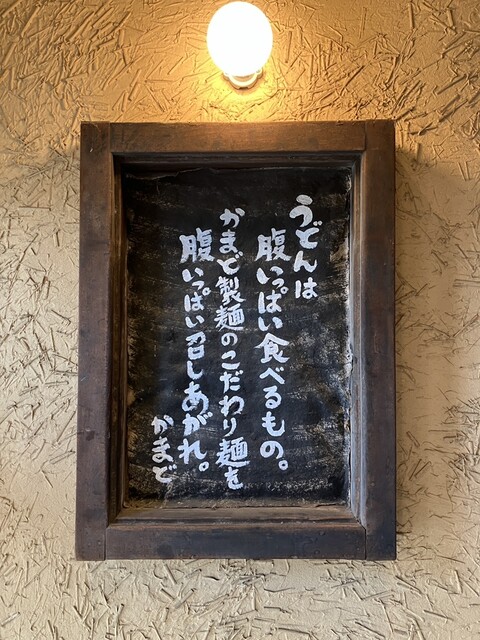 うどんは
腹いっぱい食べるもの。
かまど製麺のこだわり麺を
腹いっぱい召しあがれ。
かまど